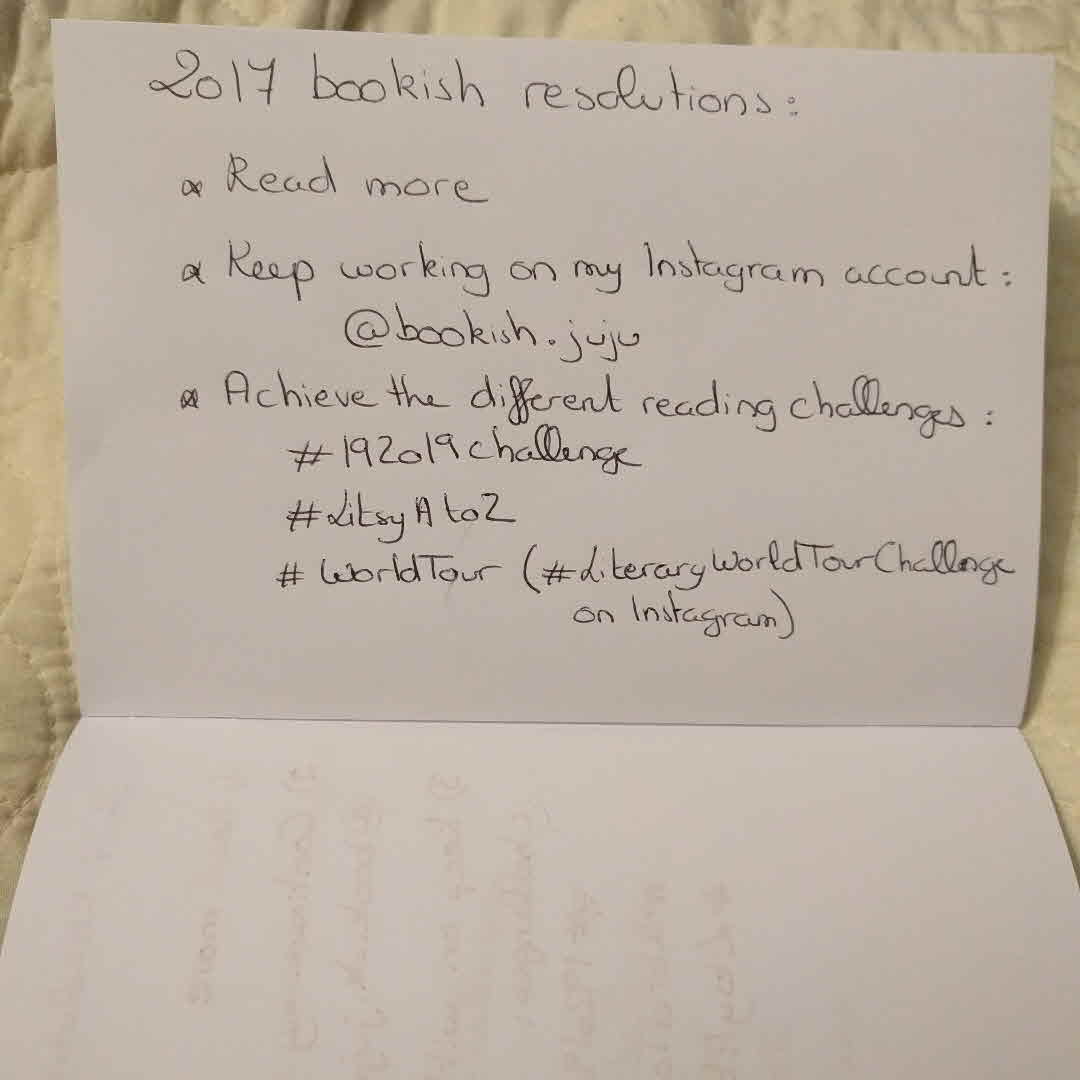 2017 bookish resolutions:
Read more
Keep working on my Instagram account:
@bookish.juju
Achieve the different reading challenges:
#192019challenge
#LitsyAtoZ
#WorldTour (#LiteraryWorldTourChallenge
on Instagram)